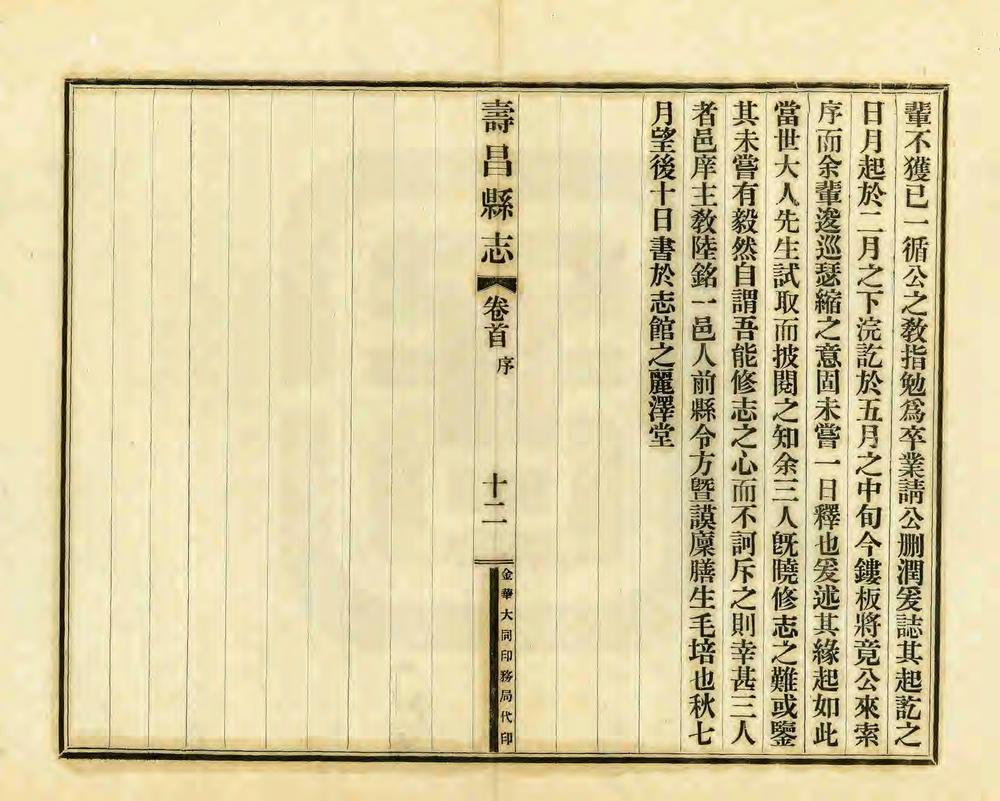 輩不獲已一循公之敎指勉爲卒業請公删潤爰誌其起訖之
日月起於二月之下浣訖於五月之中旬今鏤板將竟公來索
序而余輩逡巡瑟縮之意固未嘗一日釋也爰述其緣起如此
當世大人先生試取而披閱之知余三人旣曉修志之難或鑒
其未嘗有毅然自謂吾能修志之心而不訶斥之則幸甚三人
者邑庠主敎陸銘一邑人前縣令方暨謨廩膳生毛培也秋七
月望後十日書於志館之麗澤堂
壽昌縣志
卷首
序
十二
金華大同印務局代印